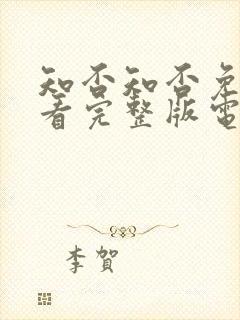 知否知否免
看完整版電
李賀